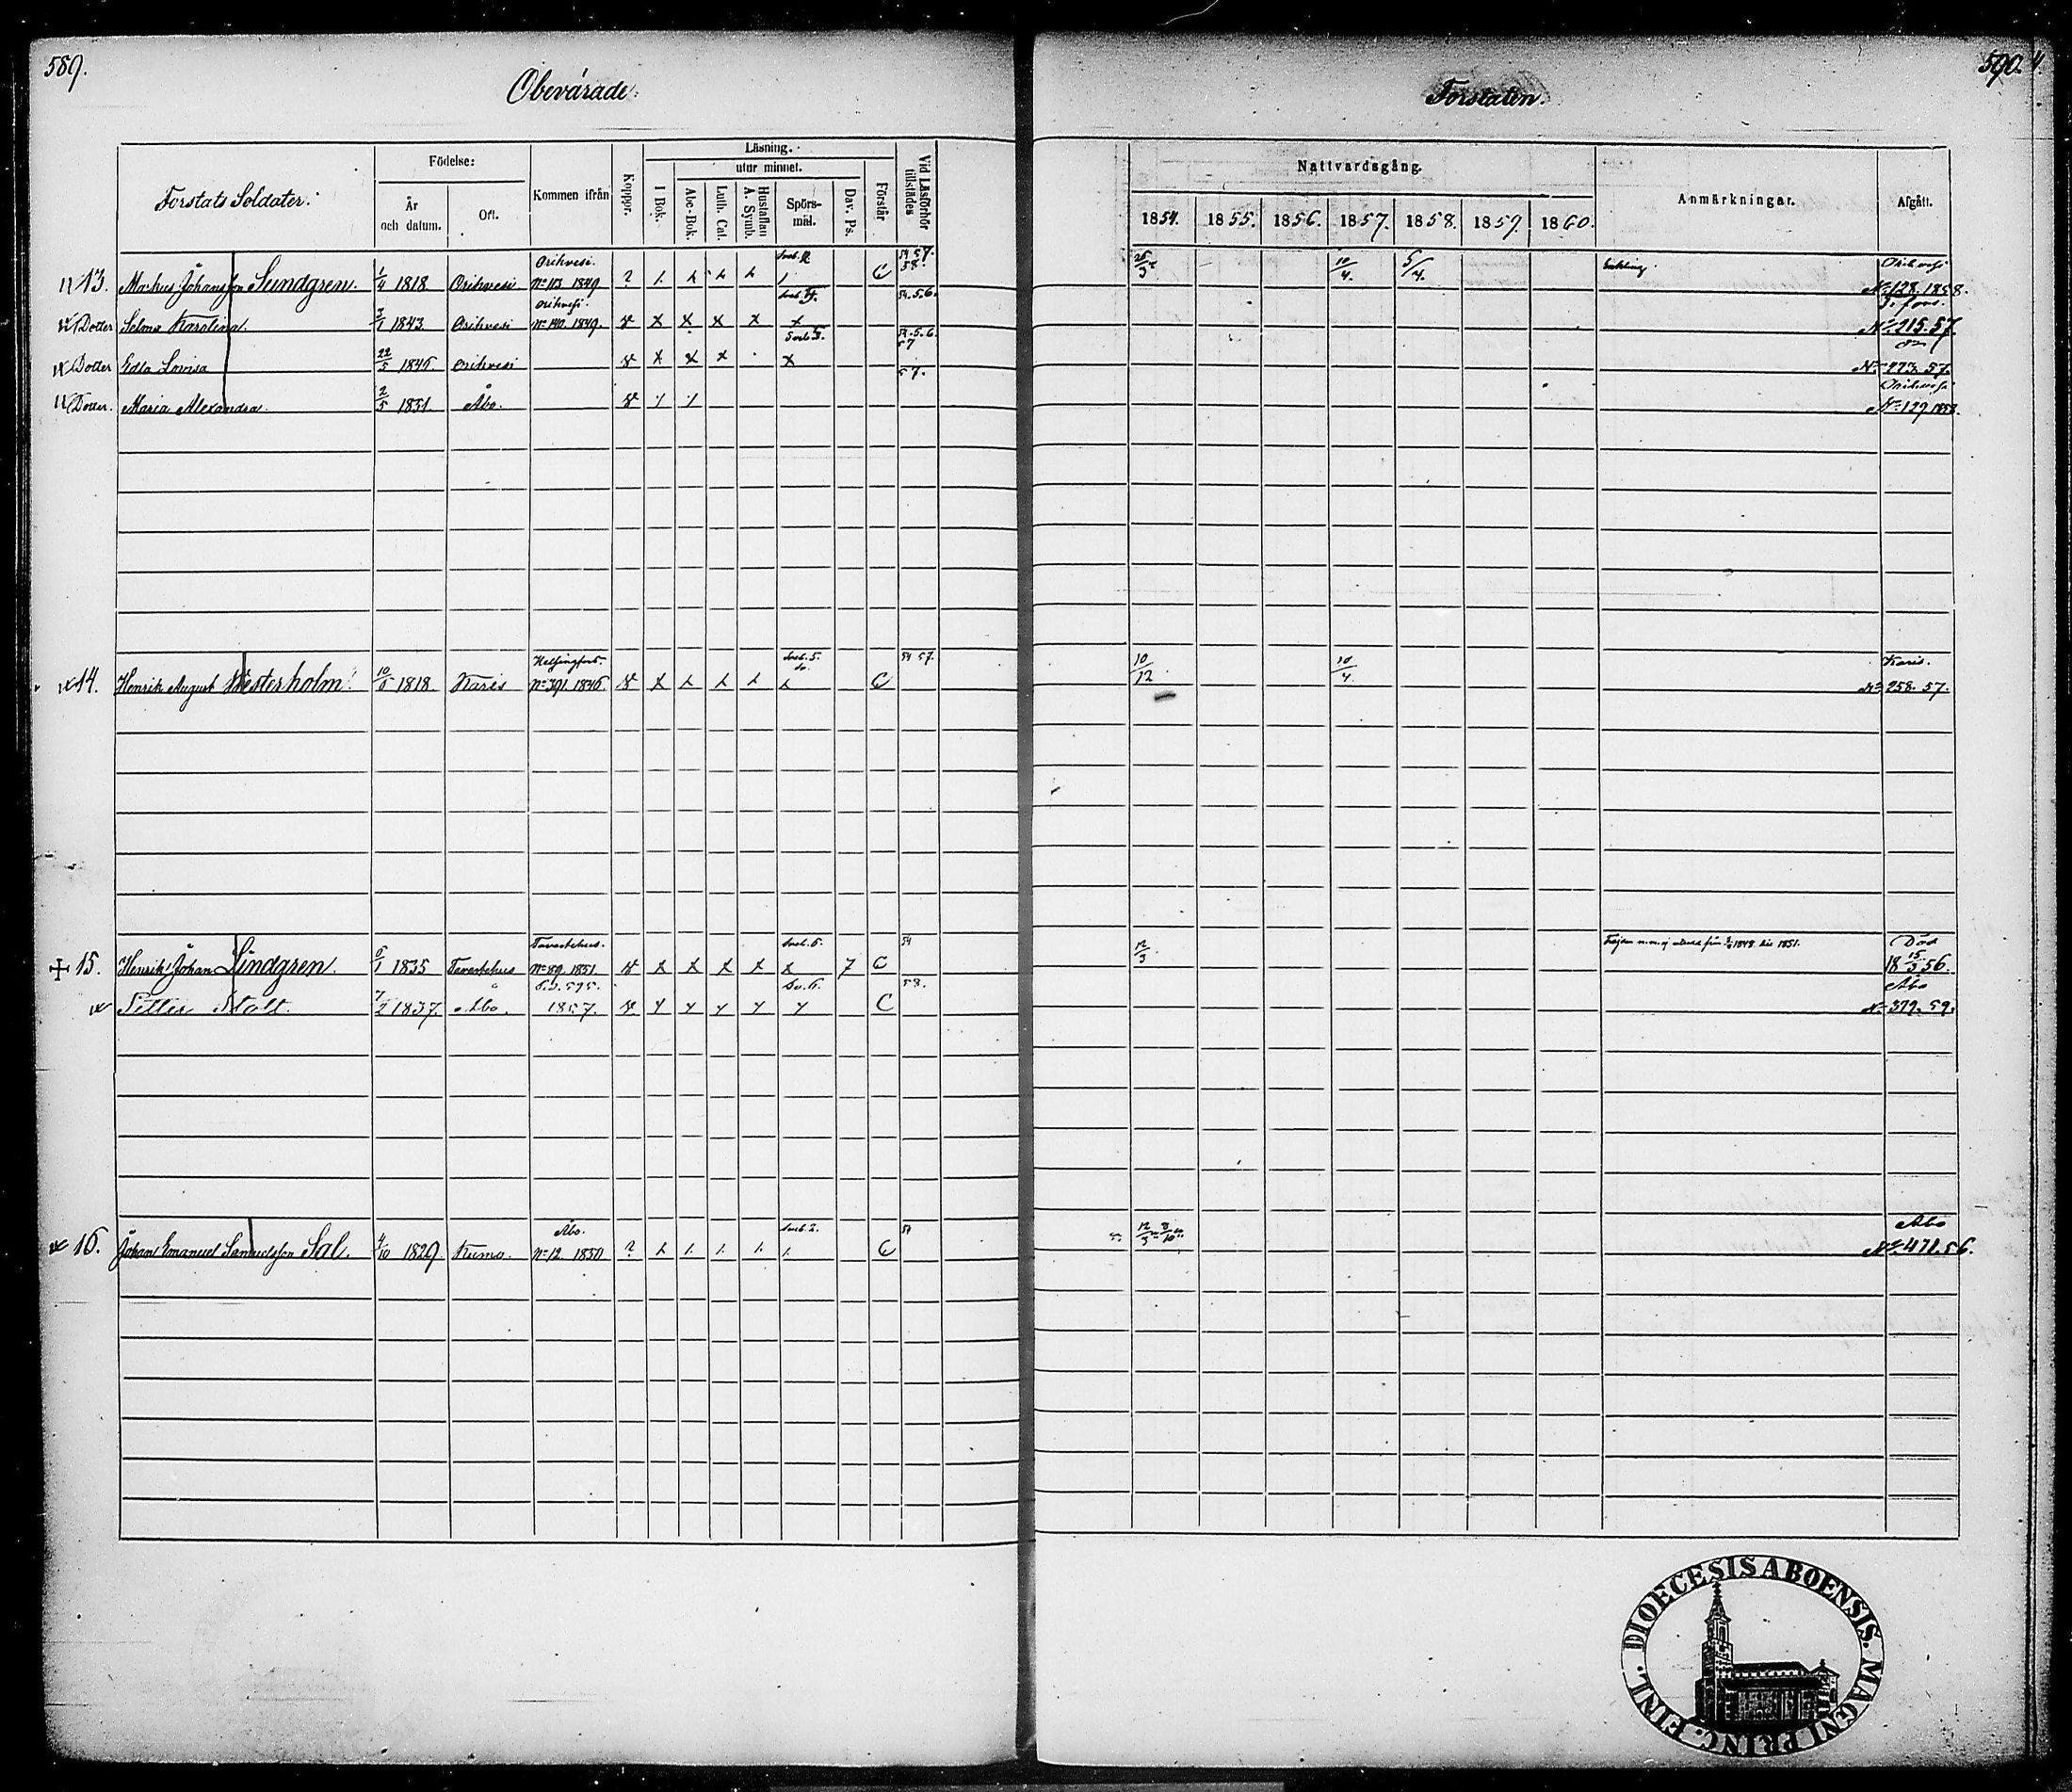 589.
Obevärade:
Forstaten.
590.
Forstats Soldater:
Födelse:
År och datum.
Ort.
Kommen ifrån
Koppr.
Läsning.
utur minnet.
I Bok.
Abc-Bok.
Luth. Cat.
Hustaflan A. Symb.
Spörs-mål.
Dav. Ps.
Förstår
Vid Läsförhör tillstädes
Nattvardsgång.
1854. 1855. 1856. 1857. 1858. 1859. 1860.
Anmärkningar.
Afgått.
13. Markus Johansson Sundgren. 1/4 1818 Orihvesi Orihvesi. No 113. 1849 ? C 54 57. 58. 10/4. 5/4. Orihvesi No 128. 1858.
Dotter Selma Karolina. 1843. Orihvesi Orihvesi. No 140. 1849. 54. 5. 6. No 215. 57
Dotter Edla Lovisa 22/5 1846. Orihvesi 54. 5. 6. 57 No 223. 57.
Dotter. Maria Alexandra. 2/5 1851. Åbo. 57. Orihvesi No 129 1858.
14. Henrik August Westerholm. 1818 Karis Helsingfors. No 391. 1846. C 54 57. 10/12 10/4. Karis. No 258. 57.
15. Henrik Johan Lindgren. 1835 Tavastehus Tavastehus. No 89. 1851. 7 C 54 12/3. Död 18 15/3 56.
Petter Stolt. 7/2 1837. Åbo. S. 595. 1857. C 58. Åbo No 379. 59.
16. Johan Emanuel Samuelsson Sal. 4/10 1829. Kumo. Åbo. No 12. 1850 ? C 54 12/3 8/10 Åbo No 471. 56.
FINL. DIOECESIS ABOENSIS. MAGNI PRINC.